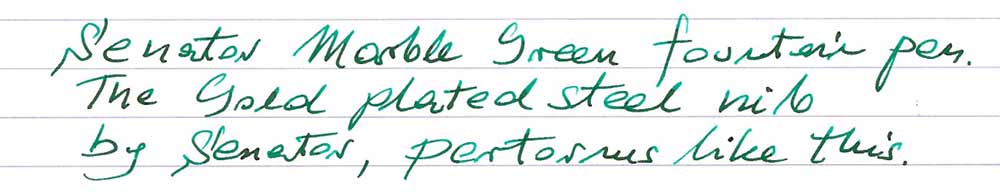 Senator Marble Green fountain pen.
The Gold plated steel nib
by Senator, performs like this.